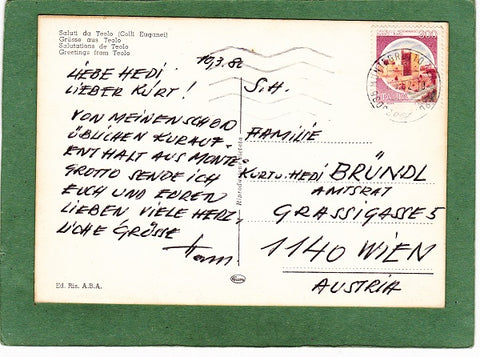 Saluti da Teolo (Colli Euganei)
Grüsse aus Teolo
Salutations de Teolo
Greetings from Teolo
LIEBE HEDI,
LIEBER KURT!
VON MEINEN SCHON
ÜBLICHEN KURAUF-
ENTHALT AUS MONTE-
GROTTO SENDE ICH
EUCH UND EUREN
LIEBEN, VIELE HERZ-
LICHE GRÜSSE
Ed. Rin. A.B.A.
300
S.H.
FAMILIE
KURT U. HEDI BRÜNDL
AMTSRAT
GRASSIGASSE 5
1140 WIEN
AUSTRIA